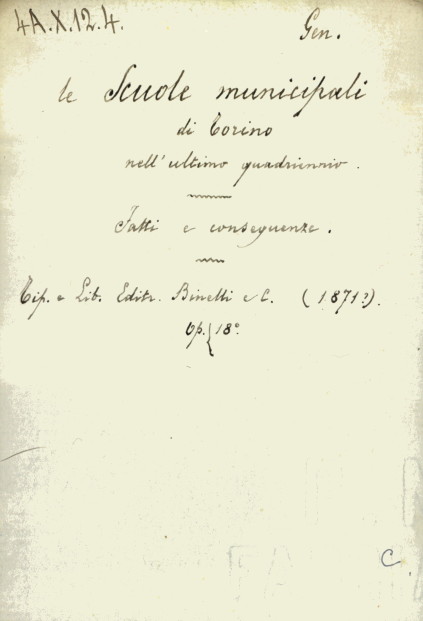 4A.X.12.4.
Gen.
le Scuole municipali
di Torino
nell'ultimo quadriennio.
Fatti e conseguenze.
Tip. e Lib. Editr. Binelli e C. (1871?).
Op. { 18°
C